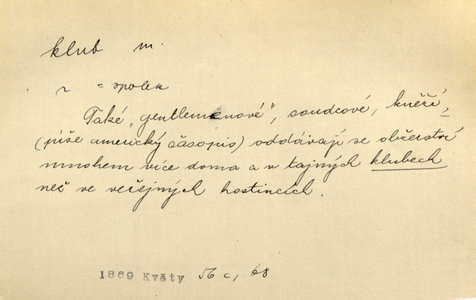 klub m.
= spolek
Také „gentleménové", soudcové, kněží,
(píše americký časopis) oddávají se občerství
mnohem více doma a v tajných klubech
než ve veřejných hostincích.
1869 Květy 68